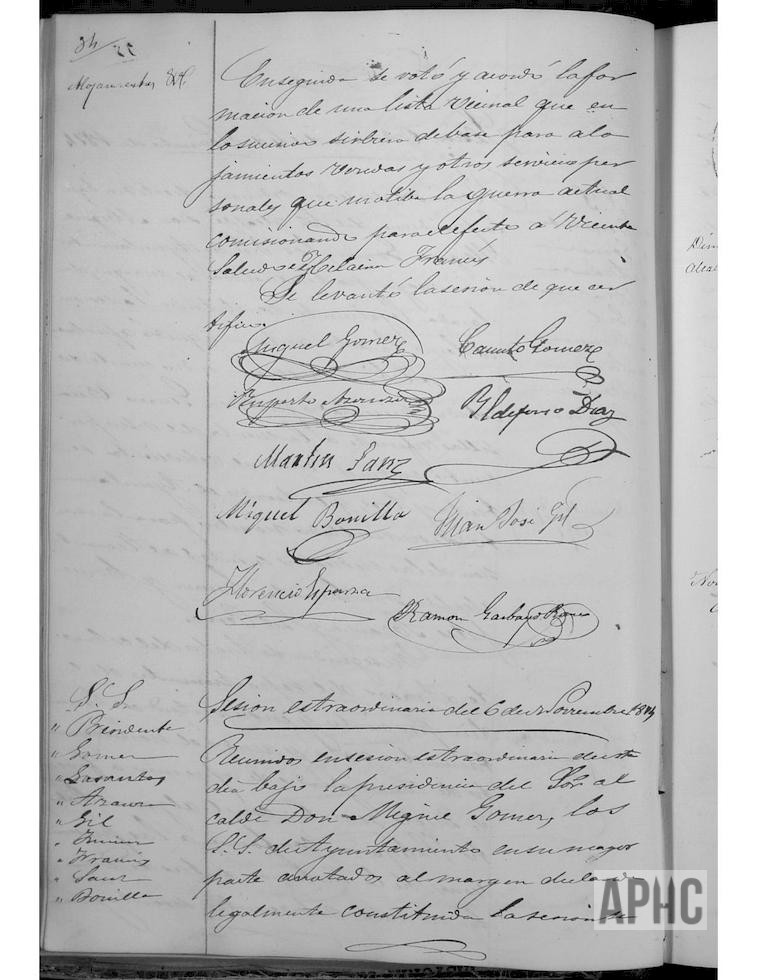 34
Alojamientos &ª
Enseguida se votó y acordó la for
macion de una lista vecinal que en
lo sucesivo sirbiera de base para alo
jamientos rondas y otros servicios per
sonales que motiba la guerra actual
comisionando para el efecto a Vicente
y Francés
Se levantó la sesion de que cer
tifico.
Miguel Gomez Canuto Gomez
Ruperto Ildefonso Diaz
Martin Sanz
Miguel Bonilla Juan José Gil
Florencio Esparza
Ramon
S. S.
" Presidente
" Gomez
" Lasantas
" Azaura
" Gil
"
" Francés
" Sanz
" Bonilla
Sesion estraordinaria del 6 de Noviembre 1874
Reunidos en sesion estraordinaria de este
dia bajo la presidencia del Sor al
calde Don Miguel Gomez, los
S.S. de Ayuntamiento en su mayor
parte anotados al margen declarada
legalmente constituida la sesion se
APHC